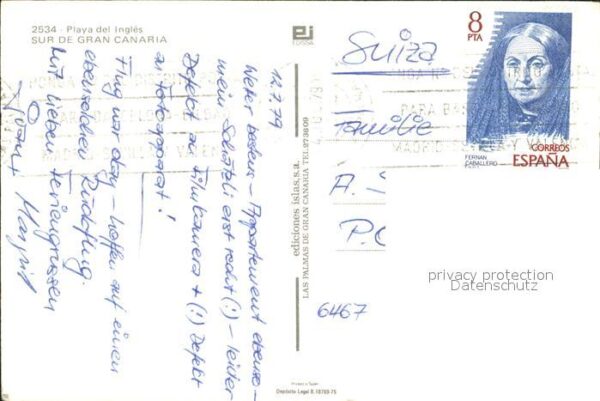 2534 - Playa del Inglés
SUR DE GRAN CANARIA
12.7.79
Wetter bestens - Appartement ebenso -
mein Schätzli erst recht (!) - leider
Defekt an Filmkamera + (!) Defekt
an Fotoapparat!
Flug war okay - hoffen auf einen
ebensolchen Rückflug.
Mit lieben Feriengrüssen
Margrit
ediciones islas, s.a.
LAS PALMAS DE GRAN CANARIA TEL. 273609
Printed in Spain
Depósito Legal B. 18769-75
8
PTA
CORREOS
ESPAÑA
FERNAN
CABALLERO
Suiza
Familie
A. S
P.C
6467
privacy protection
Datenschutz